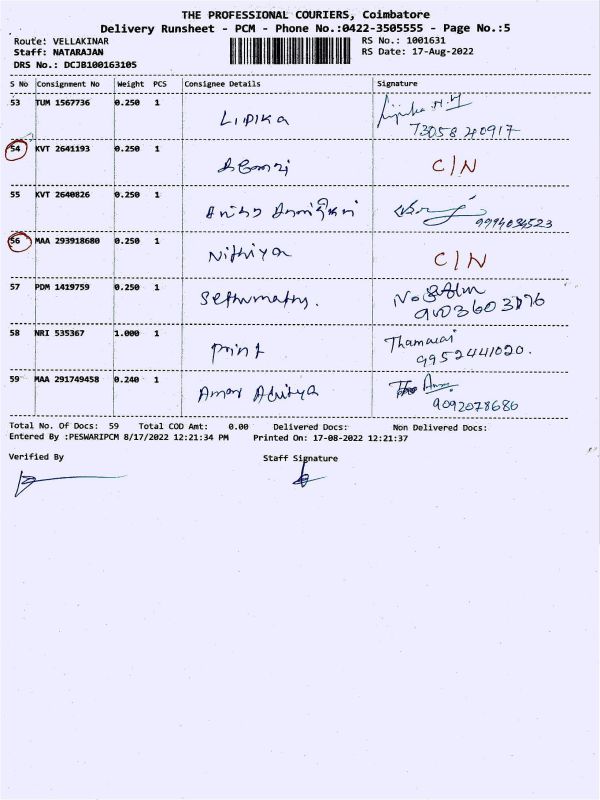 THE PROFESSIONAL COURIERS, Coimbatore
Delivery Runsheet - PCM - Phone No.:0422-3505555 - Page No.:5
Route: VELLAKINAR RS No.: 1001631
Staff: NATARAJAN RS Date: 17-Aug-2022
DRS No.: DCJB100163105
S No Consignment No Weight PCS Consignee Details Signature
53 TUM 1567736 0.250 1 LIPIKA
73058 40917
54 KVT 2641193 0.250 1 C/N
55 KVT 2640826 0.250 1
9994034523
56 MAA 293918680 0.250 1 Nithiya C/N
57 PDM 1419759 0.250 1 Sethumathy.
58 NRI 535367 1.000 1 print Thamarai
9952441020.
59 MAA 291749458 0.240 1 Amar Aditya
9092078686
Total No. Of Docs: 59 Total COD Amt: 0.00 Delivered Docs: Non Delivered Docs:
Entered By :PESWARIPCM 8/17/2022 12:21:34 PM Printed On: 17-08-2022 12:21:37
Verified By Staff Signature